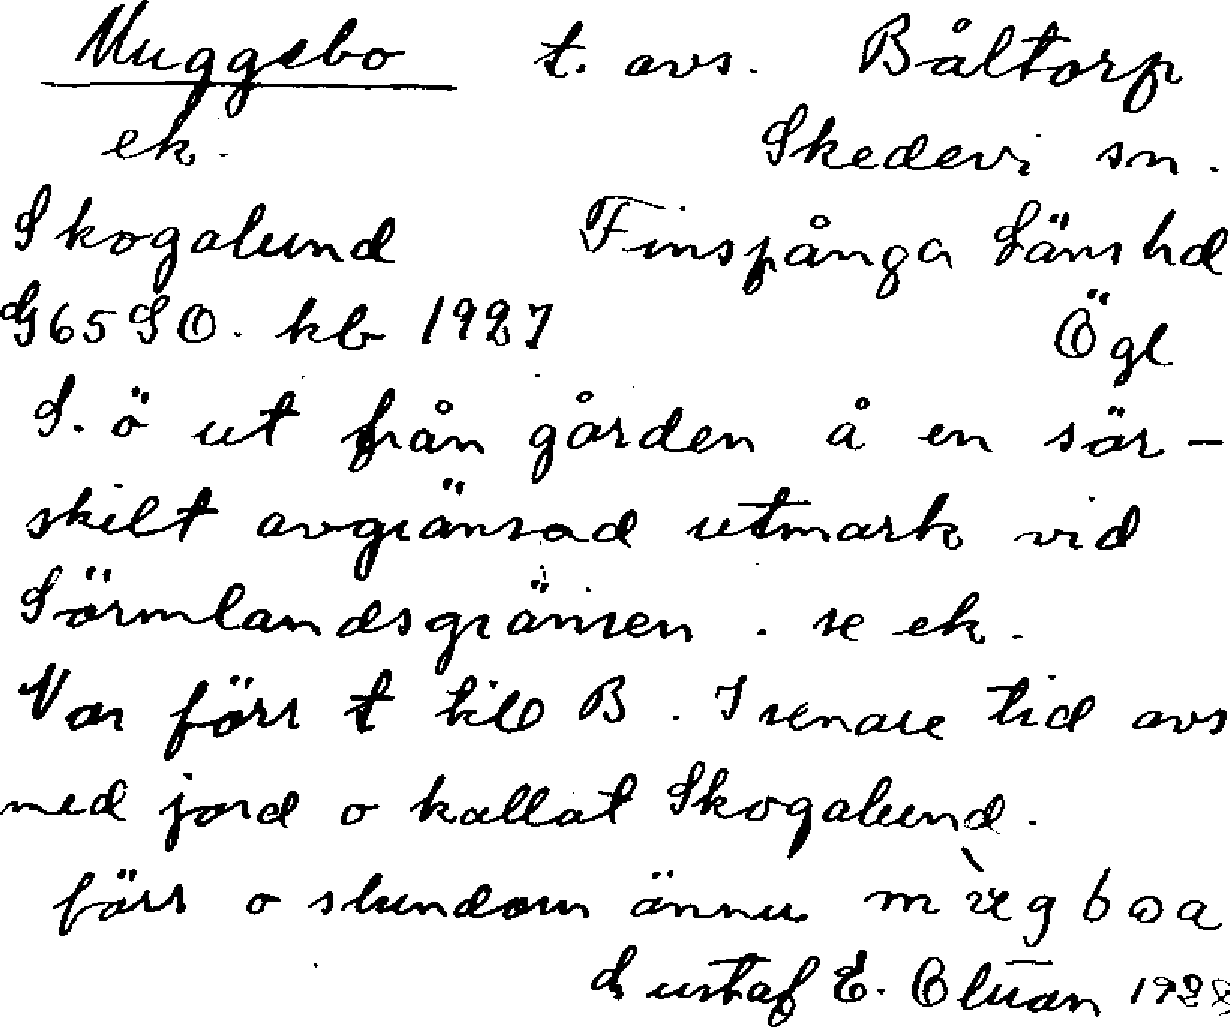 Muggsbo t. avs. Båltorp
ek. Skedevi sn.
Skogalund Finspånga Läns hd
G65SO. kb 1927 Ögl
S. ö ut från gården å en sär-
skilt avgränsad utmark vid
Sörmlandsgränsen. se ek.
Var förr t till B. I senare tid avs
med jord o kallat Skogalund.
förr o stundom ännu
Gustaf E.